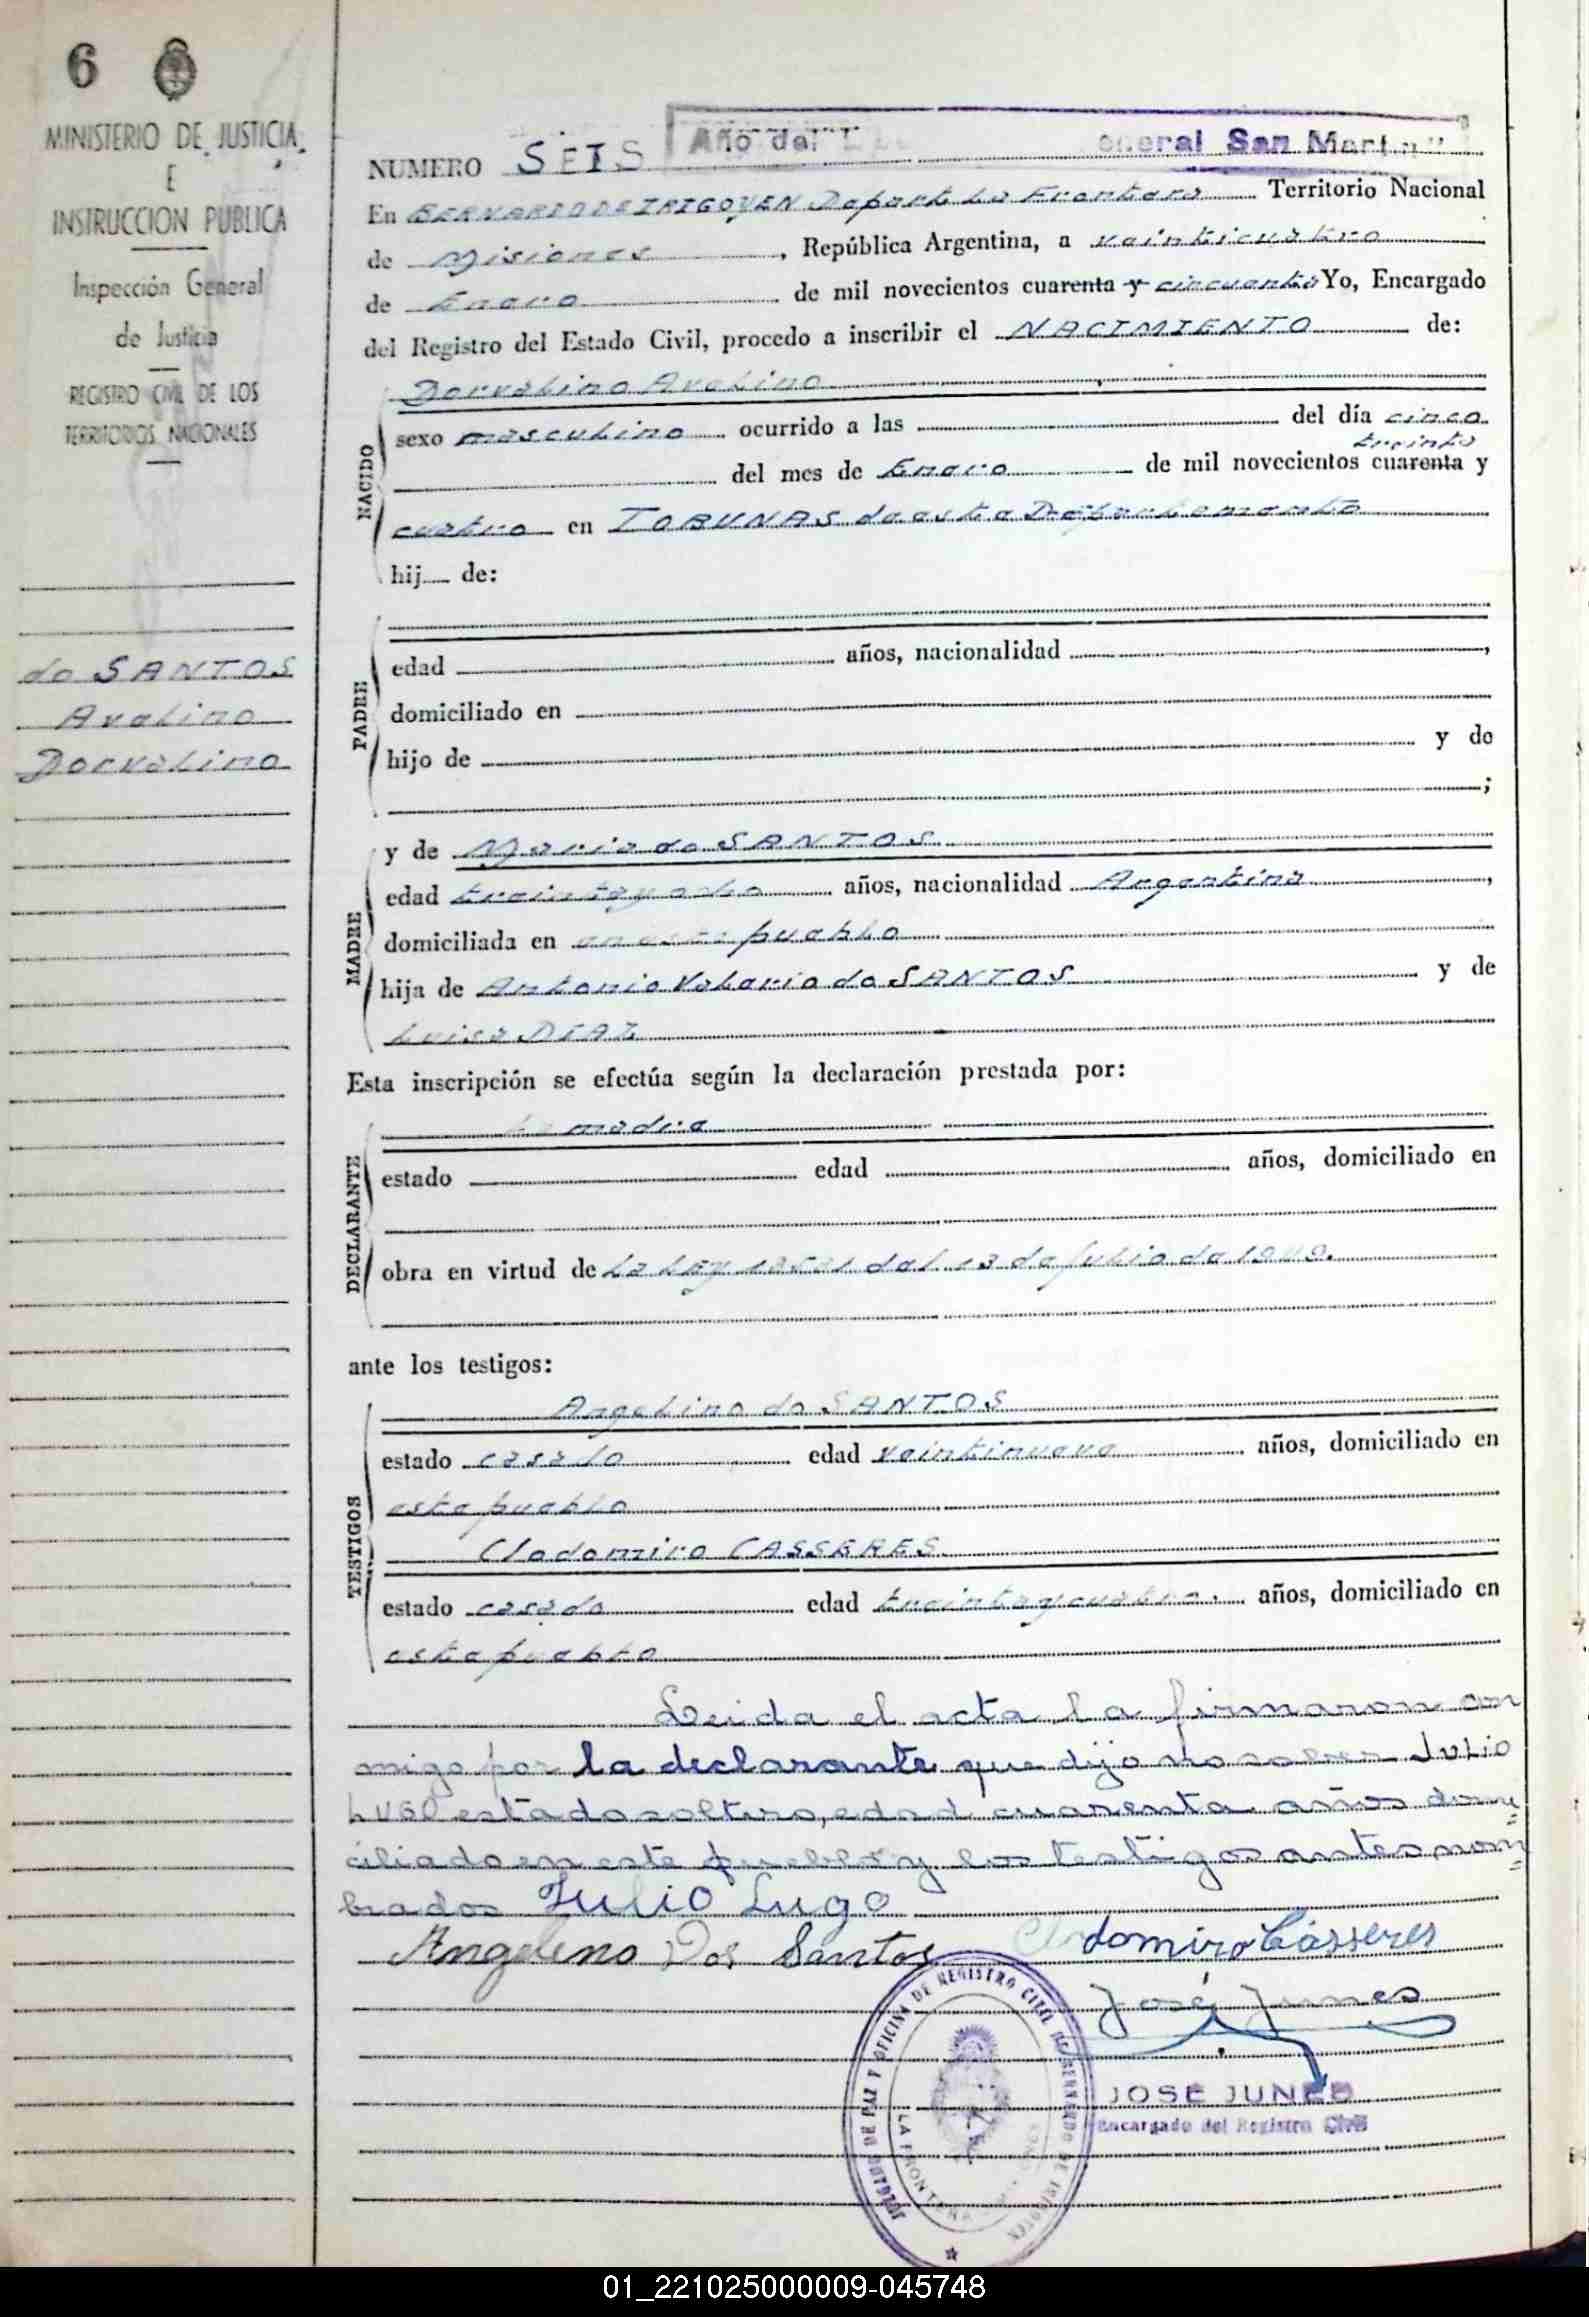 6
MINISTERIO DE JUSTICIA
E
INSTRUCCION PUBLICA
Inspección General
de Justicia
REGISTRO CIVIL DE LOS
TERRITORIOS NACIONALES
do SANTOS
Avelino
Dorvalino
Año del General San Martin
NUMERO SEIS
En BERNARDO DE IRIGOYEN Depart. La Frontera Territorio Nacional
de Misiones, República Argentina, a veinticuatro
de Enero de mil novecientos cuarenta y cincuenta Yo, Encargado
del Registro del Estado Civil, procedo a inscribir el NACIMIENTO de:
NACIDO
Dorvalino Avelino
sexo masculino ocurrido a las del día cinco
treinta
del mes de Enero de mil novecientos cuarenta y
cuatro en TOBUNAS de este Departamento
hij de:
PADRE
edad años, nacionalidad ,
domiciliado en
hijo de y de
;
MADRE
y de Maria do SANTOS
edad treinta y ocho años, nacionalidad Argentina ,
domiciliada en en este pueblo
hija de Antonio Valerio do SANTOS y de
Luisa DIAZ
Esta inscripción se efectúa según la declaración prestada por:
DECLARANTE
La madre
estado edad años, domiciliado en
obra en virtud de la Ley del 13 de Julio de 1949.
ante los testigos:
TESTIGOS
Angelino do SANTOS
estado casado edad veintinueve años, domiciliado en
este pueblo
Clodomiro CASSERES
estado casado edad treinta y cuatro. años, domiciliado en
este pueblo
Leida el acta la firmaron con
migo por la declarante que dijo no saber JULIO
LUGO estado soltero, edad cuarenta años domi=
ciliado en este pueblo y los testigos antes nom=
brados Julio Lugo
Angelino Dos Santos Clodomiro Cásseres
José Junes
JOSE JUNES
Encargado del Registro Civil
JUZGADO DE PAZ Y OFICINA DE REGISTRO CIVIL DE BERNARDO DE IRIGOYEN
LA FRONTERA
01_221025000009-045748